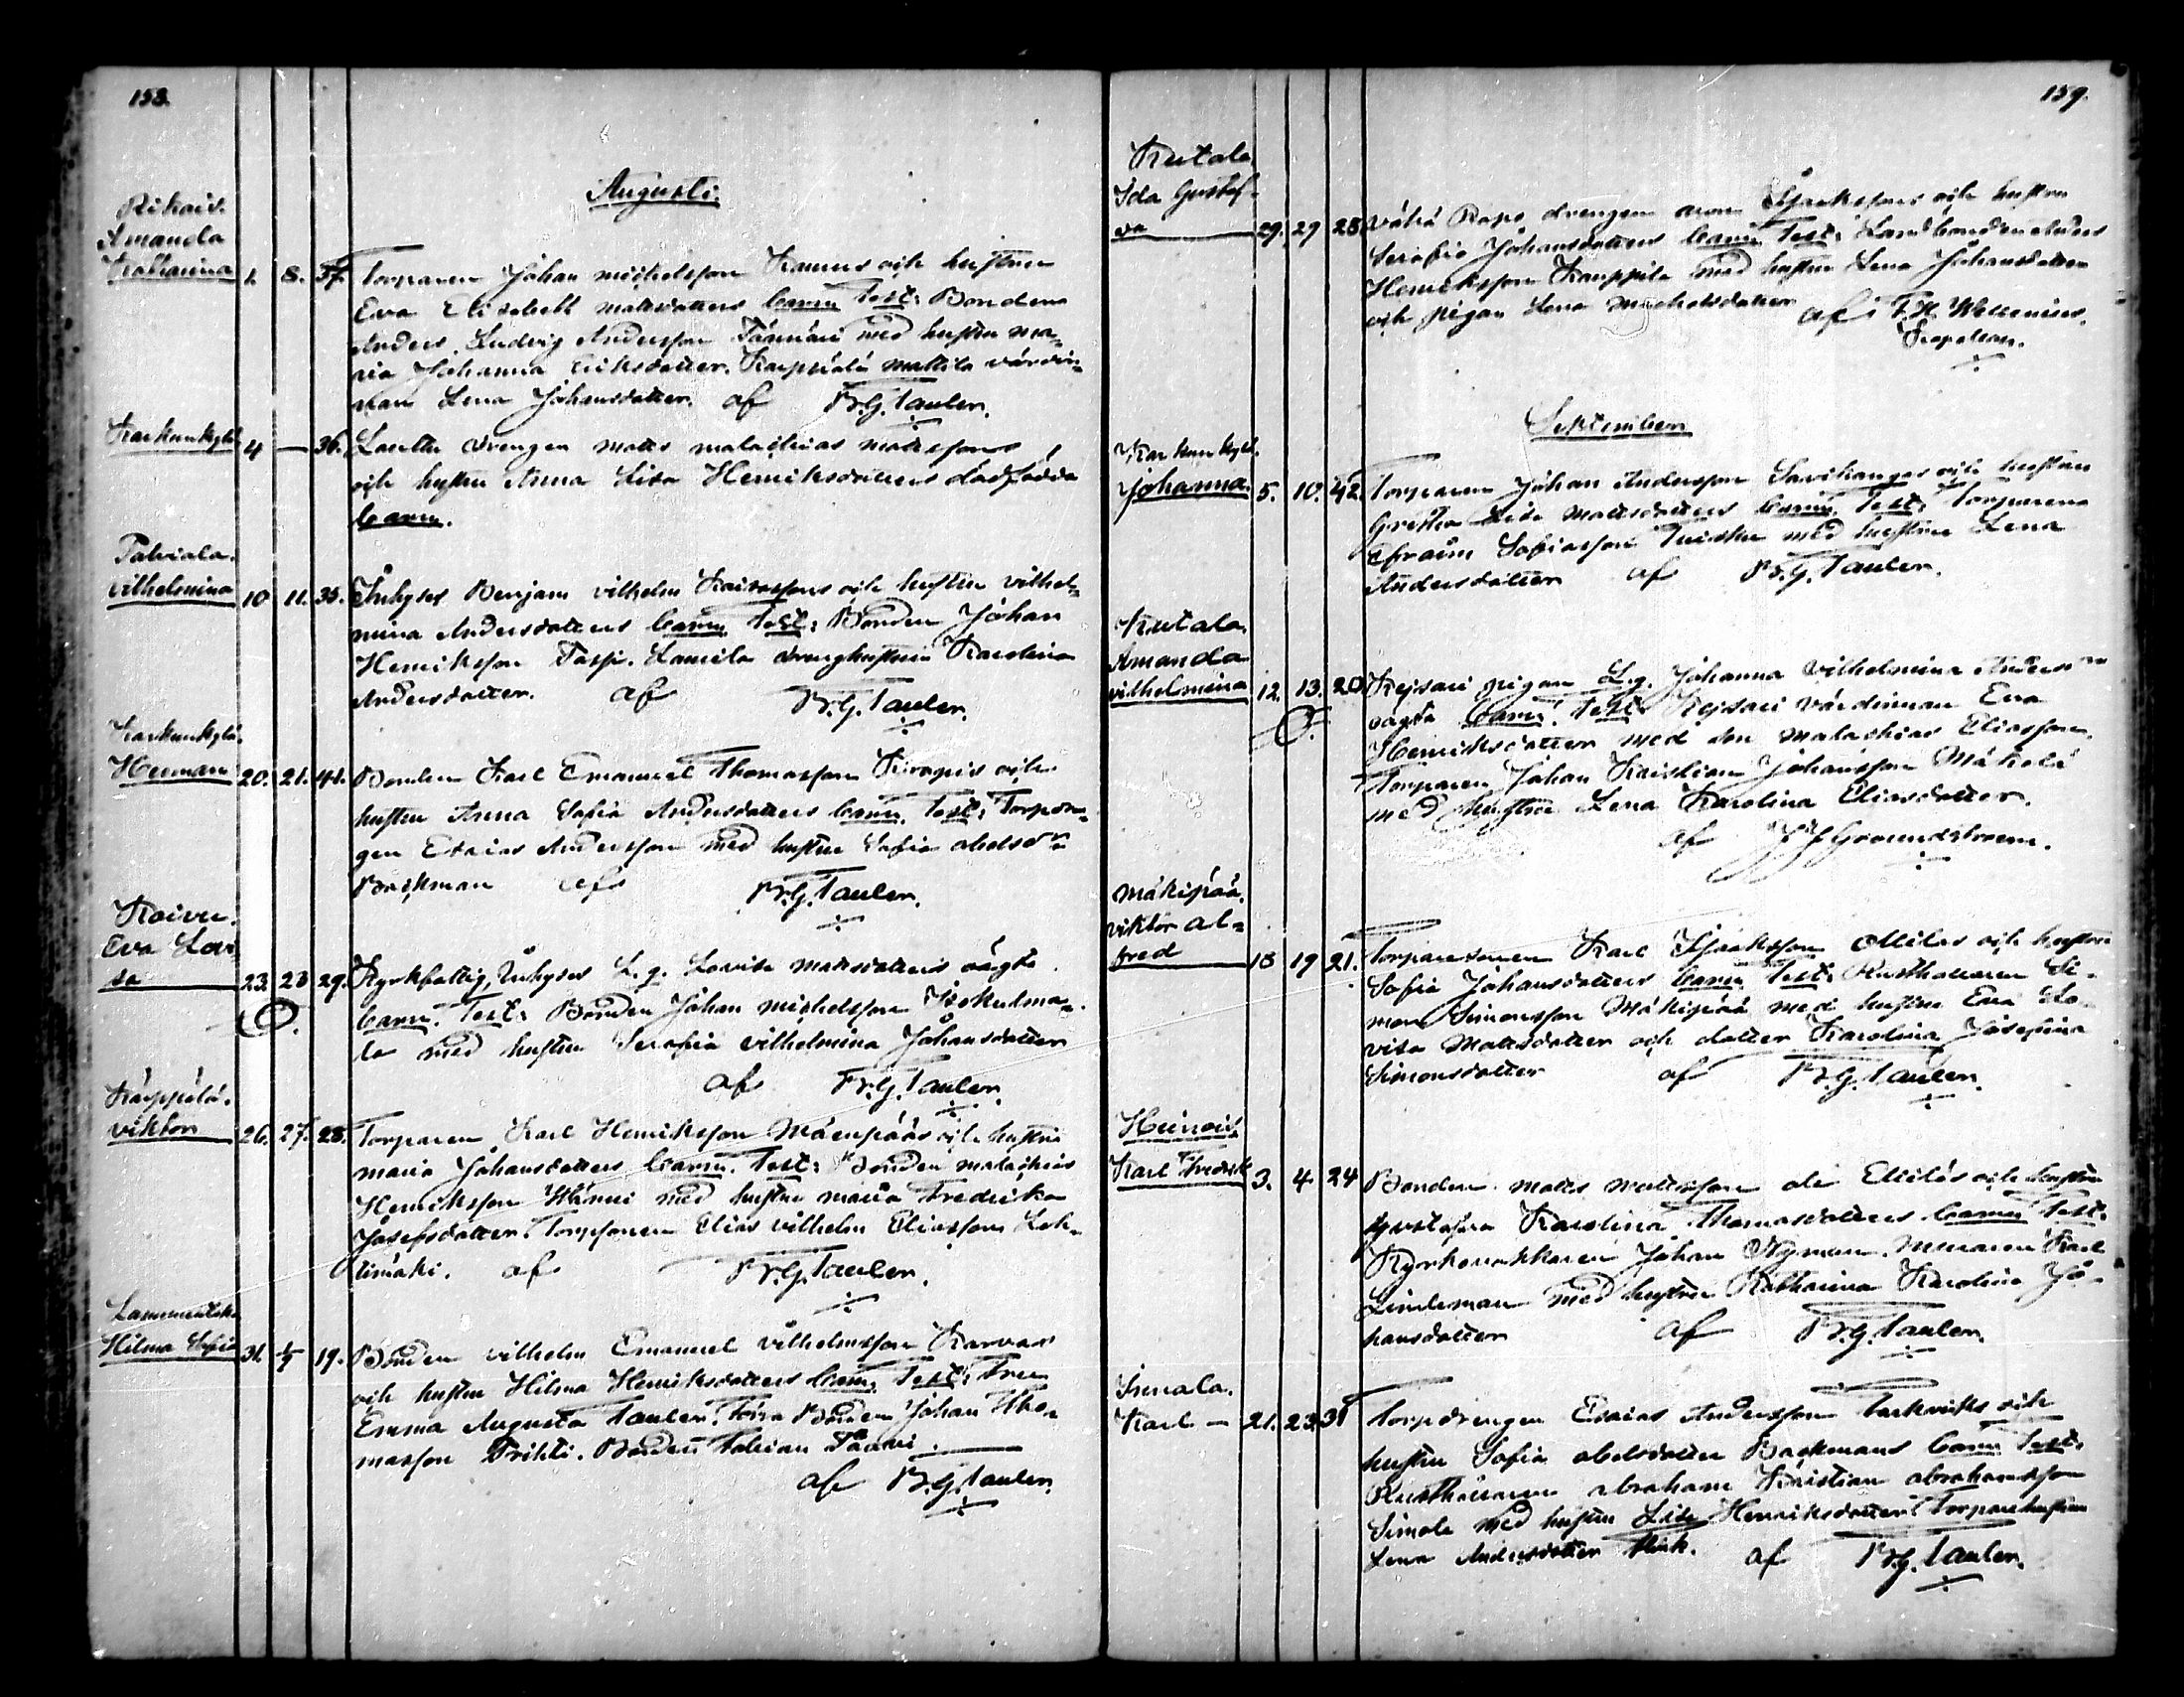 158.
Augusti.
Rikais.
Amanda
Katharina 1. 8. 37. Torparen Johan Michelsson Kannus och hustrun
Eva Elisabeth Mattsdotters barn. Test: Bonden
Anders Ludvig Andersson Jännäri med hustru Ma-
ria Johanna Eriksdotter. Käppälä Mattila värdin-
nan Lena Johansdotter. af Fr.G. Taulér.
Karkunkylä 4 — 36. Drengen Matts Malachias Mattssons
och hustru Anna Lisa Henriksdotters dödfödda
barn.
Palviala.
Vilhelmina 10 11. 35. Inhyses Benjam Vilhelm och hustru Vilhel-
mina Andersdotters barn. Test: Bonden Johan
Henriksson Passi. drenghustrun Karolina
Andersdotter. af Fr.G. Taulér.
Karkunkylä.
Herman 20. 21. 41. Bonden Karl Emanuel Thomasson och
hustru Anna Sofia Andersdotters barn. Test: Torpdren-
gen Esaias Andersson med hustru Sofia Abelsdr
Backman af Fr.G. Taulér.
Koivu.
Eva Lovi-
sa 23. 23 29. Kyrkfattig, Inhyses L.g. Lovisa Mattsdotters oägta
barn. Test: Bonden Johan Michelsson
la med hustru Serafia Vilhelmina Johansdotter
af Fr.G. Taulér.
Käppälä.
Viktor 26. 27. 28. Torparen Karl Henriksson Mäenpääs och hustru
Maria Johansdotters barn. Test: Bonden Malachias
Henriksson Hänni med hustru Maria Fredrika
Josefsdotter. Torpsonen Elias Vilhelm Eliasson Leh-
timäki. af Fr.G. Taulér.
Hilma Sofia 31. 1/9 19. Bonden Vilhelm Emanuel Vilhelmsson Karvas
och hustru Hilma Henriksdotters barn. Test: Fru
Emma Augusta Taulér. Förra Bonden Johan Tho-
masson Prihti. Bonden Fabian
af Fr.G. Taulér.
159.
Kutala.
Ida Gustaf-
va 29. 29 28. Vähä Rapo drengen Aron Isakssons och hustru
Serafia Johansdotters barn. Test: Landbonden
Henriksson Kauppila med hustru Lena Johansdotter
och pigan Lena Michelsdotter af F.H. Wellenius.
Kapellan.
September
Karkunkylä.
Johanna. 5. 10. 42. Torparen Johan Andersson Savikangas och hustrun
Gretha Lisa Mattsdotters barn. Test: Torparen
Efraim Tuisku med hustrun Lena
Andersdotter af Fr.G. Taulér.
Kutala.
Amanda
Vilhelmina 12. 13. 20 Kejsari pigan L.g. Johanna Vilhelmina Anders
oägta barn. Test: Kejsari värdinnan Eva
Henriksdotter med son Malachias Eliasson.
Torparen Johan Kristian Johansson Mäkelä
med hustru Lena Karolina Eliasdotter.
af J J Groundstroem.
Mäkipää.
Viktor Al-
fred 18 19 21. Torparesonen Karl Isaksson Ollilas och hustru
Sofia Johansdotters barn. Test: Rusthållaren Si-
mon Simonsson Mäkipää med hustru Eva Lo-
visa Mattsdotter och dotter Karolina Josefina
Simonsdotter af Fr.G. Taulér.
Heinois.
Karl Fredrik 3. 4. 24 Bonden Matts Mattsson Eliläs och hustru
Gustafva Karolina Thomasdotters barn. Test:
Kyrkovaktaren Johan Nyman. Muraren Karl
Lindeman med hustru Katharina Karolina Jo-
hansdotter af Fr.G. Taulér.
Simala.
Karl — 21. 23 31 Torpdrengen Esaias Andersson och
hustru Sofia Abelsdotter Backmans barn. Test:
Rusthållaren Abraham Kristian Abrahamsson
Simola med hustru Lisa Henriksdotter. Torparehustrun
Lena Andersdotter af Fr.G. Taulér.